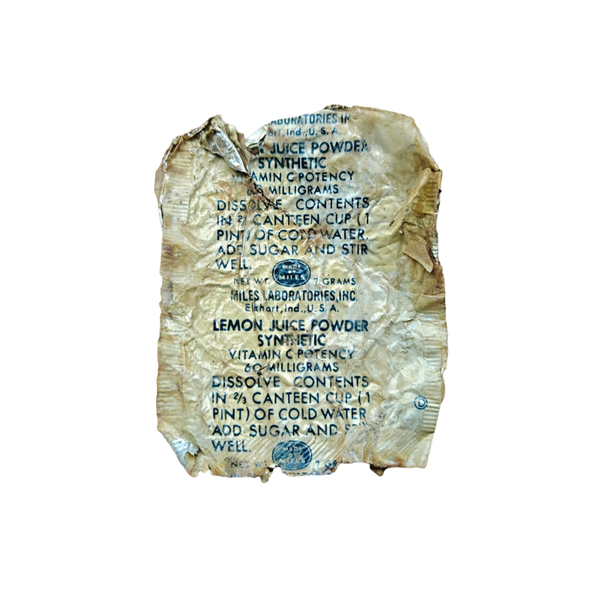 LABORATORIES IN
Ind., U. S. A.
JUICE POWDER
SYNTHETIC
VITAMIN C POTENCY
60 MILLIGRAMS
DISSOLVE CONTENTS
IN 2/ CANTEEN CUP (1
PINT) OF COLD WATER,
ADD SUGAR AND STIR
WELL.
MADE BY MILES
NET WT. 7 GRAMS
MILES LABORATORIES, INC.
Elkhart, Ind., U. S. A.
LEMON JUICE POWDER
SYNTHETIC
VITAMIN C POTENCY
60 MILLIGRAMS
DISSOLVE CONTENTS
IN 2/3 CANTEEN CUP (1
PINT) OF COLD WATER
ADD SUGAR AND STIR
WELL.
MILES
NET WT 7 GR